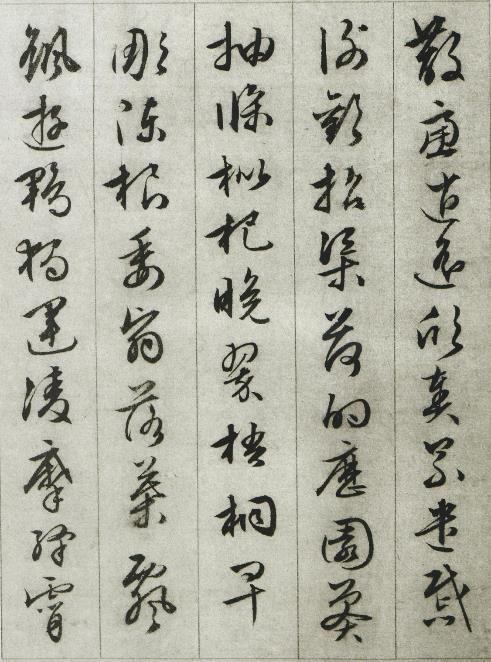 散慮逍遥欣奏累遣慼
謝歡招渠荷的歷園莽
抽條枇杷晚翠梧桐早
彫陳根委翳落葉飄
颻遊鵾獨運凌摩絳霄